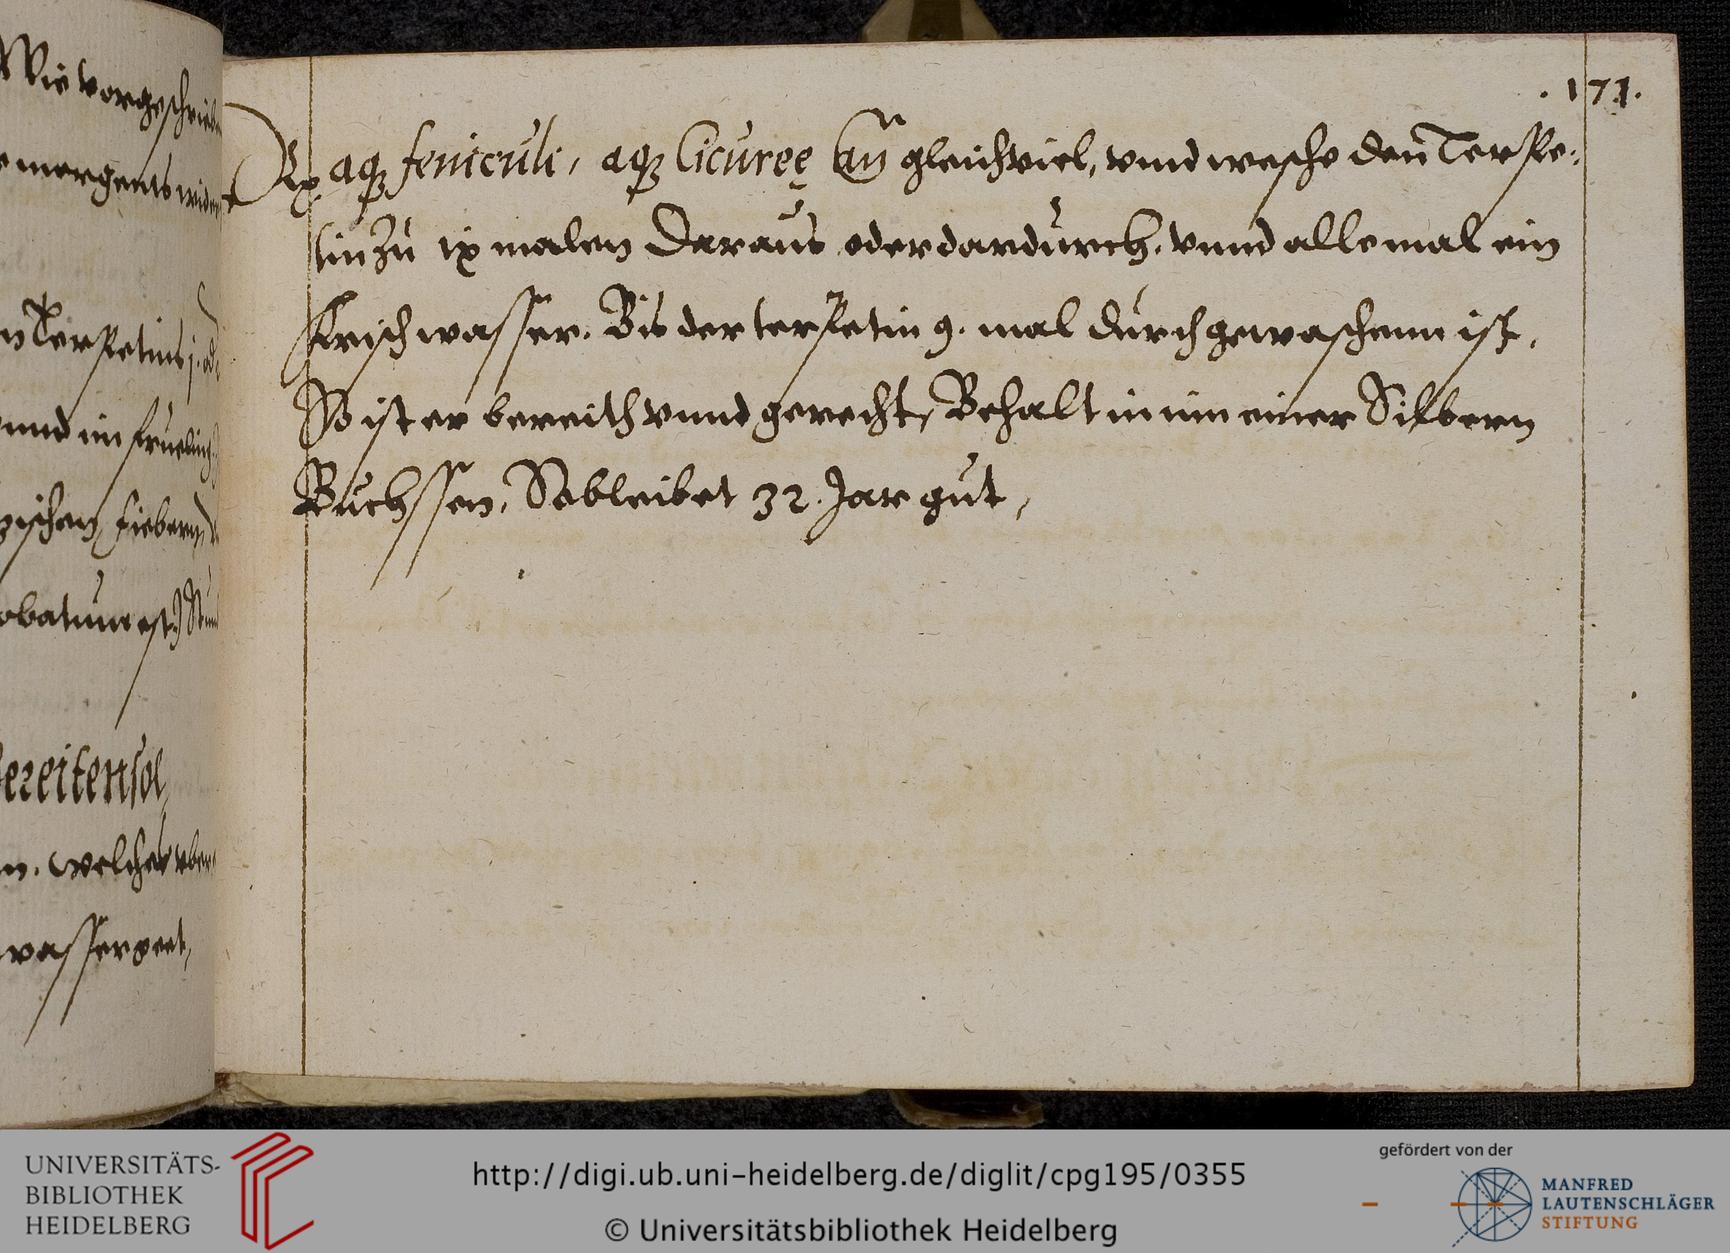 Wie vorgeschrieb
morgents wider
Terpetins j. od
unnd im frueling
ischen fiebern,
obatum est) Stund
ereiten sol,
n. welches uber
wasser geet,
.171.
Rx aqz feniculi, aqz Cicuree an gleichviel, vnnd wesche den Terpe:
tin zu ix malen Daraus oder dardurch. vnnd alle mal ein
frisch wasser. Bis der terpetin 9. mal durchgewaschenn ist,
So ist er bereith vnnd gerecht, Behalt in inn einer Silbern
Buchssen, So bleibet 32. Jar gut,
UNIVERSITÄTS-
BIBLIOTHEK
HEIDELBERG
http://digi.ub.uni-heidelberg.de/diglit/cpg195/0355
© Universitätsbibliothek Heidelberg
gefördert von der
MANFRED
LAUTENSCHLÄGER
STIFTUNG